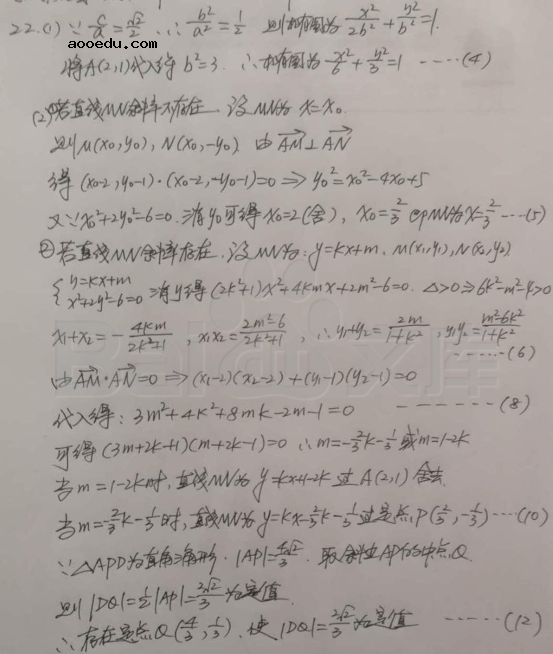 22.(1) ∵ c/a = √2/2, ∴ b²/a² = 1/2 则椭圆为 x²/2b² + y²/b² = 1.
aooedu.com
将A(2,1)代入得 b²=3. ∴椭圆为 x²/6 + y²/3 = 1 -----(4)
(2)①若直线MN斜率不存在. 设MN为 x=x₀.
则M(x₀,y₀), N(x₀,-y₀) 由 AM⊥AN
得 (x₀-2, y₀-1)·(x₀-2, -y₀-1)=0 ⇒ y₀²=x₀²-4x₀+5
又∵x₀²+2y₀²-6=0. 消y₀可得 x₀=2(舍), x₀=2/3 即MN为x=2/3 ---(5)
②若直线MN斜率存在. 设MN为: y=kx+m. M(x₁,y₁), N(x₂,y₂)
{y=kx+m x²+2y²-6=0 消y得 (2k²+1)x²+4kmx+2m²-6=0. △>0⇒6k²-m²+3>0
x₁+x₂ = -4km/2k²+1, x₁x₂ = 2m²-6/2k²+1, ∴y₁+y₂ = 2m/1+k², y₁y₂ = m²-6k²/1+k²
------(6)
由AM·AN=0 ⇒ (x₁-2)(x₂-2)+(y₁-1)(y₂-1)=0
代入得: 3m²+4k²+8mk-2m-1=0 -------(8)
可得 (3m+2k+1)(m+2k-1)=0 ∴m=-2/3k-1/3 或m=1-2k
当m=1-2k时, 直线MN为 y=kx+1-2k 过A(2,1) 舍去.
当m=-2/3k-1/3时, 直线MN为 y=kx-2/3k-1/3 过定点P(2/3,-1/3) ---(10)
∵△APD为直角三角形. |AP|=4√2/3. 取斜边AP的中点Q.
则|DQ|=1/2|AP|=2√2/3 为定值.
∴存在定点Q(4/3,1/3). 使|DQ|=2√2/3 为定值 -----(12)